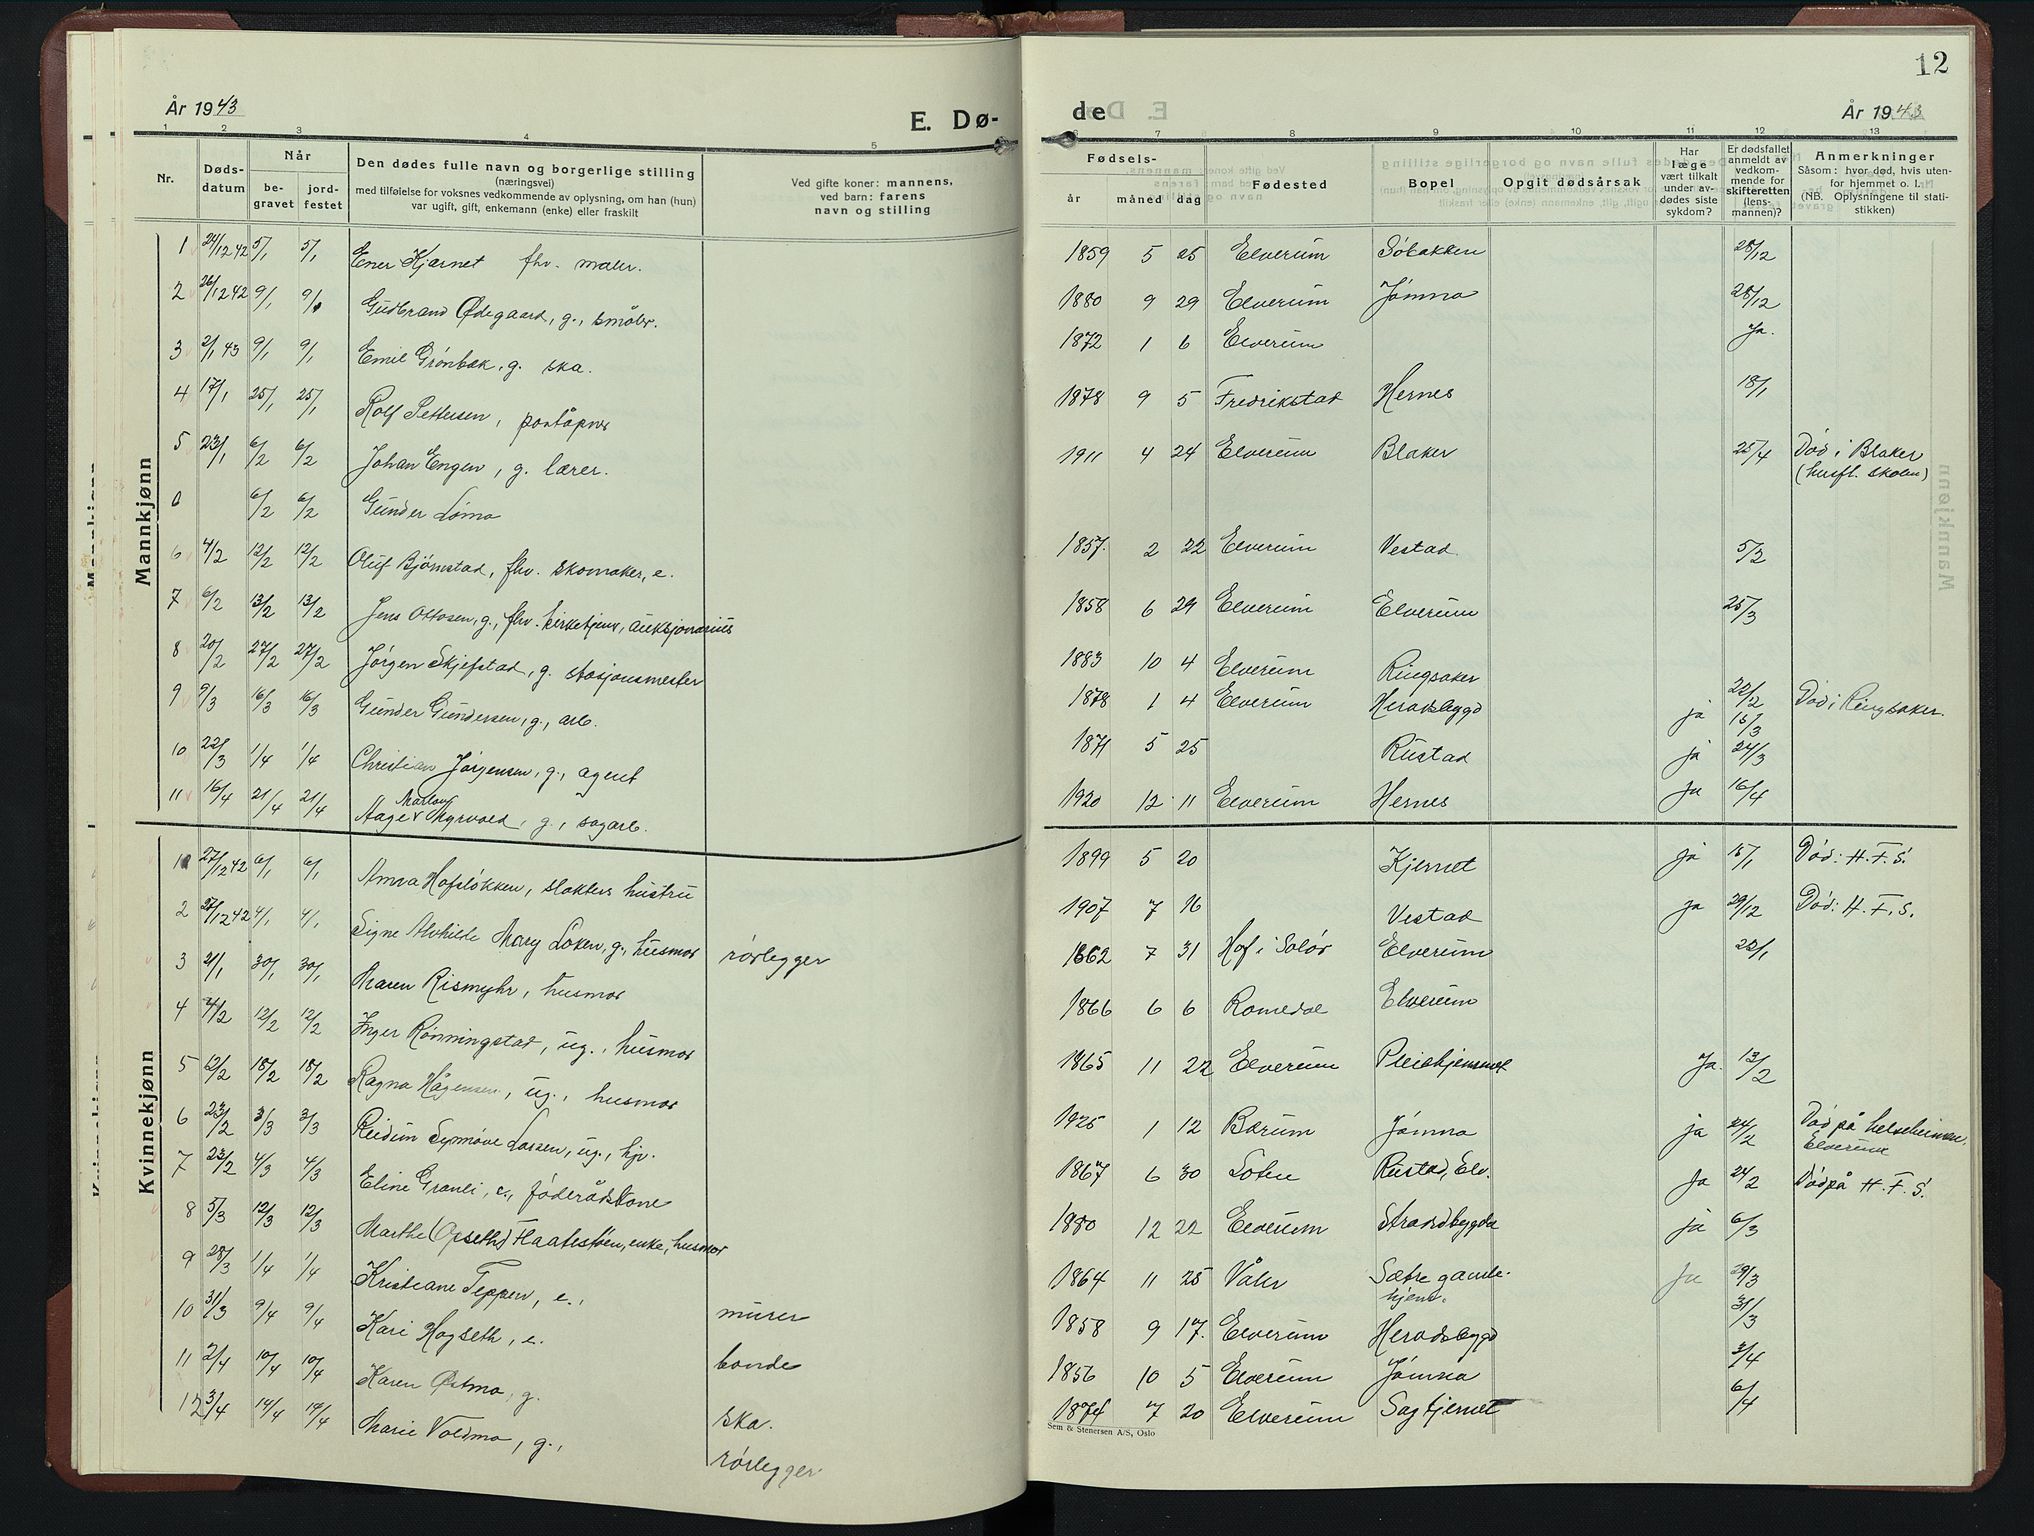 År 1943
E. Dø-
1 2 3 4 5
Nr. Døds-datum Når be-gravet jord-festet
Den dødes fulle navn og borgerlige stilling
(næringsvei)
med tilføielse for voksnes vedkommende av oplysning, om han (hun)
var ugift, gift, enkemann (enke) eller fraskilt
Ved gifte koner: mannens,
ved barn: farens
navn og stilling
Mannkjønn
1 24/12 42 5/1 5/1 Ener Kjærnet fhv. maler.
2 26/12 42 9/1 9/1 Gudbrand Ødegaard, g., småbr.
3 2/1 43 9/1 9/1 Emil Grønbæk, g. ska.
4 17/1 25/1 25/1 Rolf Pettersen, poståpner
5 23/1 6/2 6/2 Johan Engen, g. lærer.
0 6/2 6/2 Gunder Lømo
6 4/2 12/2 12/2 Oluf Bjørnstad, fhv. skomaker, e.
7 6/2 13/2 13/2 Jens Ottosen, g., fhv. kirketjener, auksjonarius
8 20/2 27/2 27/2 Jørgen Skjefstad, g. stasjonsmester
9 9/3 16/3 16/3 Gunder Gundersen, g., arb.
10 22/3 1/4 1/4 Christian Jørgensen, g., agent
11 16/4 21/4 21/4 Aage Myrvold, g., sagarb.
Kvinnekjønn
1 27/12 42 6/1 6/1 Anna Hofsløkken, slakters hustru
2 27/12 42 4/1 4/1 Signe Alvhilde Mary Loken, g., husmor rørlegger
3 21/1 30/1 30/1 Maren Rismyhr, husmor
4 4/2 12/2 12/2 Inger Rønningstad, ug., husmor
5 12/2 18/2 18/2 Ragna Hågensen, ug., husmor
6 23/2 3/3 3/3 Reidun Synnøve Larsen, ug., hjv.
7 23/2 4/3 4/3 Eline Granli, e., føderådskone
8 5/3 12/3 12/3 Marthe (Opseth) Haatestøen, enke, husmor
9 28/3 1/4 1/4 Kristiane Teppen, e., murer
10 31/3 9/4 9/4 Kari Hagseth, e. bonde
11 2/4 10/4 10/4 Karen Østmo, g. ska.
12 3/4 14/4 14/4 Marie Voldmo, g., rørlegger
12
de
År 1943
6 7 8 9 10 11 12 13
Fødsels-
år måned dag Fødested Bopel Opgit dødsårsak
Har læge vært tilkalt under av-dødes siste sykdom?
Er dødsfallet anmeldt av vedkom-mende for skifteretten (lens-mannen)?
Anmerkninger
Såsom: hvor død, hvis uten-
for hjemmet o. l.
(NB. Oplysningene til stati-
stikken)
1859 5 25 Elverum Søbakken 28/12
1880 9 29 Elverum Jømna 28/12
1872 1 6 Elverum Ja.
1878 9 5 Fredrikstad Hernes 18/1
1911 4 24 Elverum Blaker 25/4 Død i Blaker
(husfl. skolen)
1857. 2 22 Elverum Vestad. 5/2
1858 6 29 Elverum Elverum 25/3
1883 10 4 Elverum Ringsaker 22/2 Død i Ringsaker.
1878 1 4 Elverum Heradsbygd ja 15/3
1871 5 25 Rustad ja 24/3
1920 12 11 Elverum Hernes Ja 16/4
1899 5 20 Kjernet ja 15/1 Død: H. F. S.
1907 7 16 Vestad ja 29/12 Død: H. F. S.
1862 7 31 Hof i Solør Elverum 22/1
1866 6 6 Romedal Elverum
1865 11 22 Elverum Pleiehjemmet Ja. 13/2
1925 1 12 Bærum Jømna ja 24/2 Død på helseheimen.
Elverum
1867 6 30 Løten Rustad, Elv. Ja 24/2 Død på H. F. S.
1880 12 22 Elverum Strandbygda ja 6/3
1864 11 25 Våler Sætre gamle-
hjem. Ja 29/3
1858 9 17. Elverum Heradsbygd 31/3
1856 10 5 Elverum Jømna 3/4
1874 7 20 Elverum Sagtjernet 6/4
Sem & Stenersen A/S, Oslo